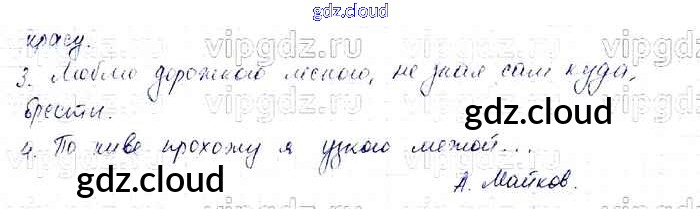 gdz.cloud
красу.
vipgdz.ru vipgdz.ru vipgdz.ru
3. Люблю дорожкою лесною, не зная сам куда,
брести.
gdz.cloud
4. По ниве прохожу я узкою межой...
gdz.cloud
А. Майков.